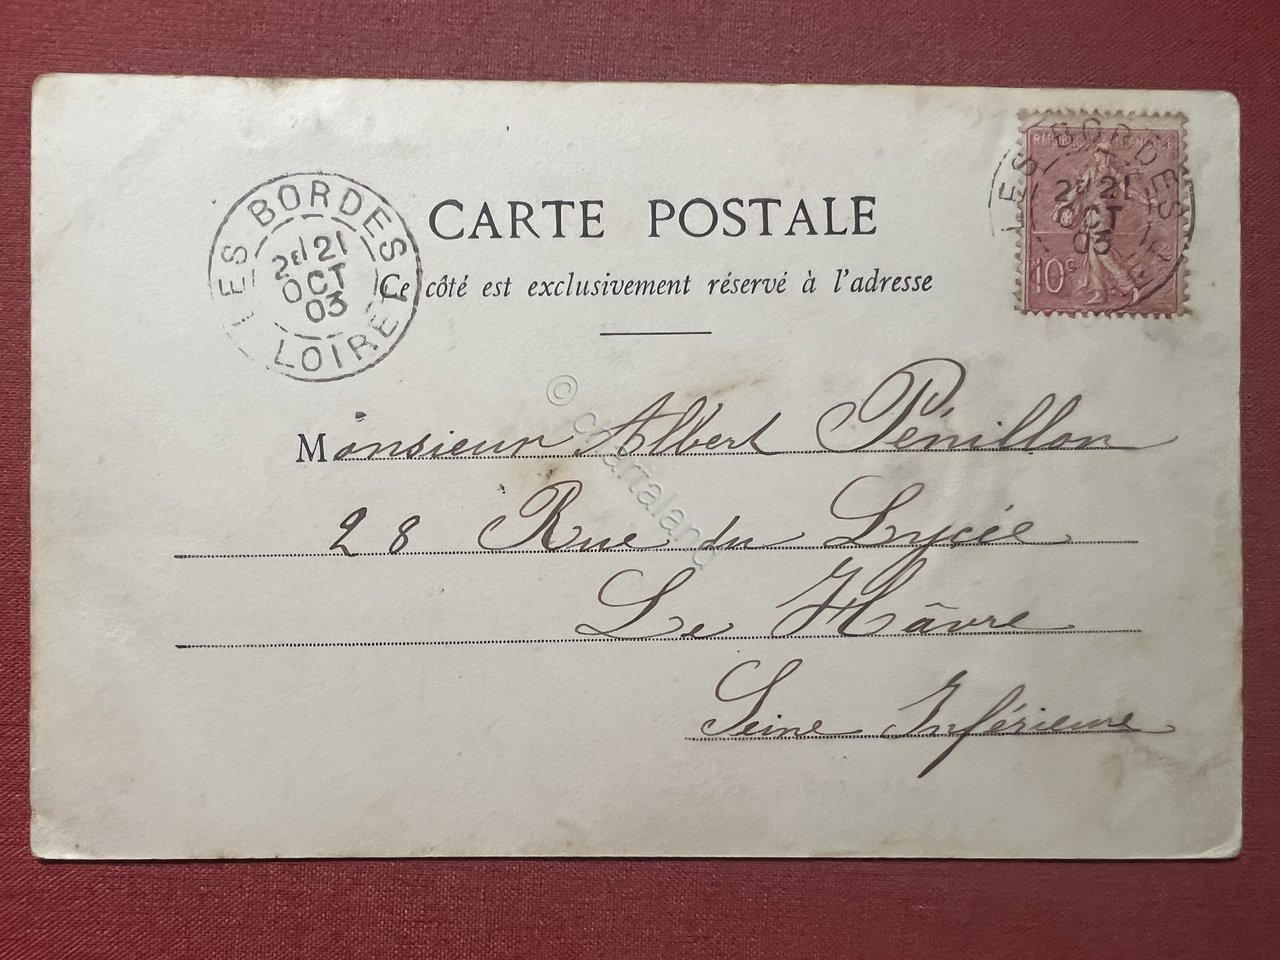 CARTE POSTALE
Ce côté est exclusivement réservé à l'adresse
LES BORDES
2E 21
OCT
03
LOIRET
LES BORDES
2E 21
OCT
03
10c
Monsieur Albert Pénillon
28 Rue du Lycée
Le Hâvre
Seine Inférieure
© chartaland